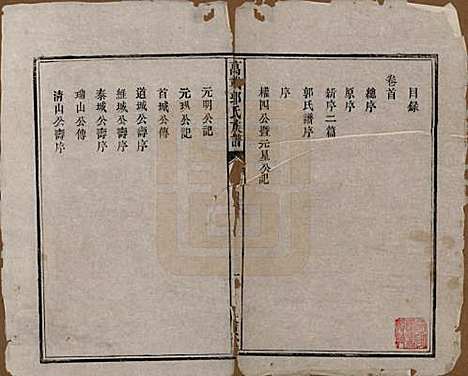 目錄
卷首
總序
原序
新序二篇
郭氏譜序
序
權四公暨元星公記
郭氏族譜
元明公記
元珠公記
首城公傳
道城公壽序
維城公壽序
泰城公壽序
瑞山公傳
清山公壽序